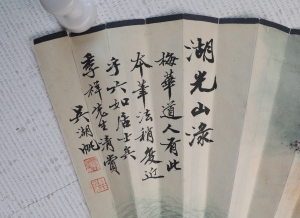 湖光山渌
梅華道人有此
本筆法稍復近
乎六如居士矣
季祥先生清賞
吳湖帆